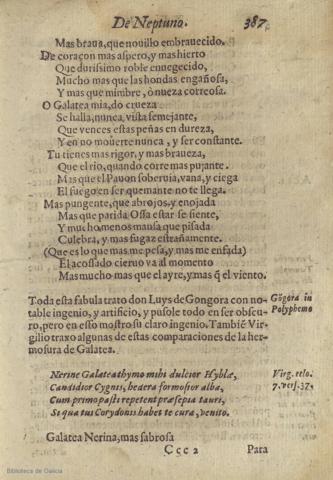 De Neptuno. 387
Mas braua, que nouillo embrauecido.
De coraçon mas aspero, y mas hierto
Que durissimo roble enuegecido,
Mucho mas que las hondas engañosa,
Y mas que mimbre, ò nueza correosa.
O Galatea mia, do crueza
Se halla, nunca vista semejante,
Que vences estas peñas en dureza,
Y en no mouerte nunca, y ser constante.
Tu tienes mas rigor, y mas braueza,
Que el rio, quando corre mas pujante.
Mas que el Pauon soberuia, vana, y ciega
El fuego en ser quemante no te llega.
Mas pungente, que abrojos, y enojada
Mas que parida Ossa estar se siente,
Y mucho menos mansa que pisada
Culebra, y mas fugaz estrañamente.
(Que es lo que mas me pesa, y mas me enfada)
El acossado cieruo va al momento
Mas mucho mas que el ayre, y mas q̃ el viento.
Toda esta fabula trato don Luys de Gongora con no-
table ingenio, y artificio, y pusole todo en ser obscu-
ro, pero en esso mostro su claro ingenio. Tambiẽ Vir-
gilio traxo algunas de estas comparaciones de la her-
mosura de Galatea.
Gõgora in
Polyphemo
Nerine Galatea thymo mihi dulcior Hyblæ,
Candidior Cygnis, hedera formosior alba,
Cum primo pasti repetent præsepia tauri,
Si qua tui Corydonis habet te cura, venito.
Virg. eclo.
7. vers. 37.
Galatea Nerina, mas sabrosa
Ccc 2 Para
Biblioteca de Galicia